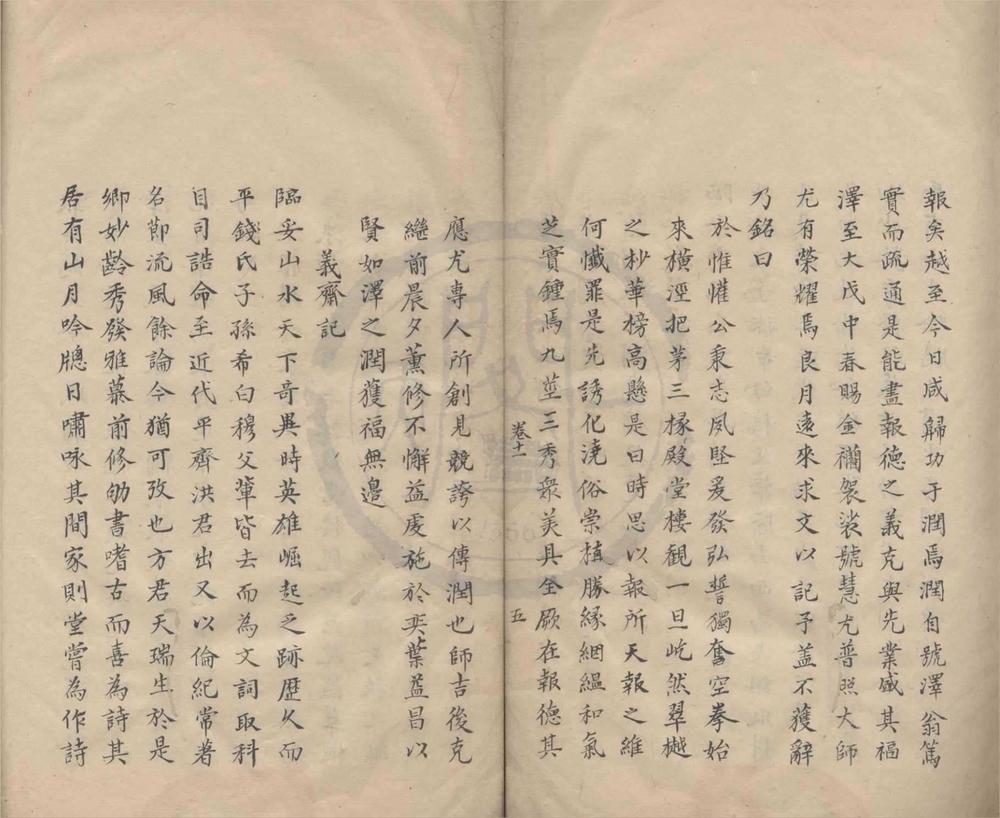 報矣越至今日咸歸功于潤焉潤自號澤翁篤
實而疏通是能盡報德之義克與先業盛其福
澤至大戊中春賜金襴袈裟號慧尤普照大師
尤有榮耀焉良月遠來求文以記予盖不獲辭
乃銘曰
於惟懽公秉志夙堅爰發弘誓獨奮空拳始
來橫涇把茅三椽殿堂樓觀一旦屹然翠樾
之杪華榜高懸是曰時思以報所天報之維
何懺罪是先誘化澆俗崇植勝緣絪縕和氣
芝實鍾焉九莖三秀衆美具全厥在報德其
卷十一
五
應尤專人所創見競誇以傳潤也師吉後克
繼前晨夕薰修不懈益虔施於奕葉益昌以
賢如澤之潤獲福無邊
義齋記
臨安山水天下奇異時英雄崛起之跡歷久而
平錢氏子孫希白穆父輩皆去而為文詞取科
目司誥命至近代平齊洪君出又以倫紀常著
名節流風餘論今猶可攷也方君天瑞生於是
卿妙齡秀發雅慕前修劬書嗜古而喜為詩其
居有山月吟牎日嘯咏其間家則堂嘗為作詩